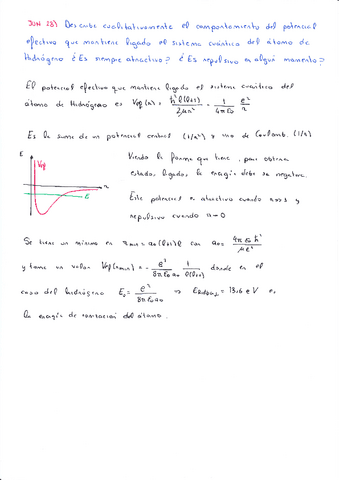 JUN 23) Describe cualitativamente el comportamiento del potencial
efectivo que mantiene ligado el sistema cuántico del átomo de
Hidrógeno ¿Es siempre atractivo? ¿Es repulsivo en algún momento?
El potencial efectivo que mantiene ligado el sistema cuántico del
átomo de Hidrógeno es Vef(r) = ħ² l(l+1) / 2μr² - 1/4πε₀ e²/r
Es la suma de un potencial central (1/r²) y uno de Coulomb (1/r)
E
Vef
r
E
Viendo la forma que tiene, para obtener
estados ligados, la energía debe ser negativa.
Este potencial es atractivo cuando r>>1 y
repulsivo cuando r→0
Se tiene un mínimo en rmin = a₀ l(l+1) con a₀ = 4πε₀ħ² / μe²
y toma un valor Vef(rmin) = - e²/8πε₀a₀ 1/l(l+1) donde en el
caso del hidrógeno E₀ = e²/8πε₀a₀ ⇒ = 13,6 eV es
la energía de ionización del átomo.